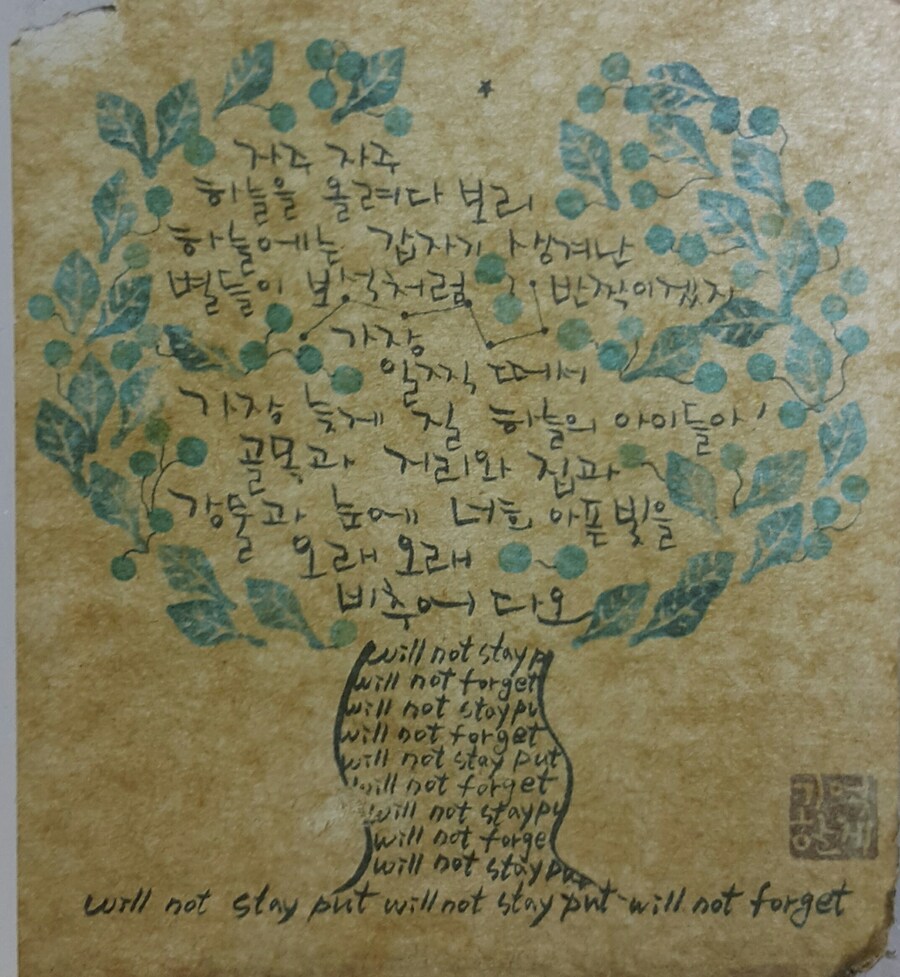 자주 자주
하늘을 올려다 보리
하늘에는 갑자기 생겨난
별들이 보석처럼 반짝이겠지
가장
일찍 떠서
가장 늦게 질 하늘의 아이들아!
골목과 거리와 집과
강물과 숲에 너희 아픈 빛을
오래 오래
비추어 다오
will not stay p
will not forget
will not stay pu
will not forget
will not stay put
will not forget
will not stay pu
will not forge
will not stay put
will not stay put will not stay put will not forget